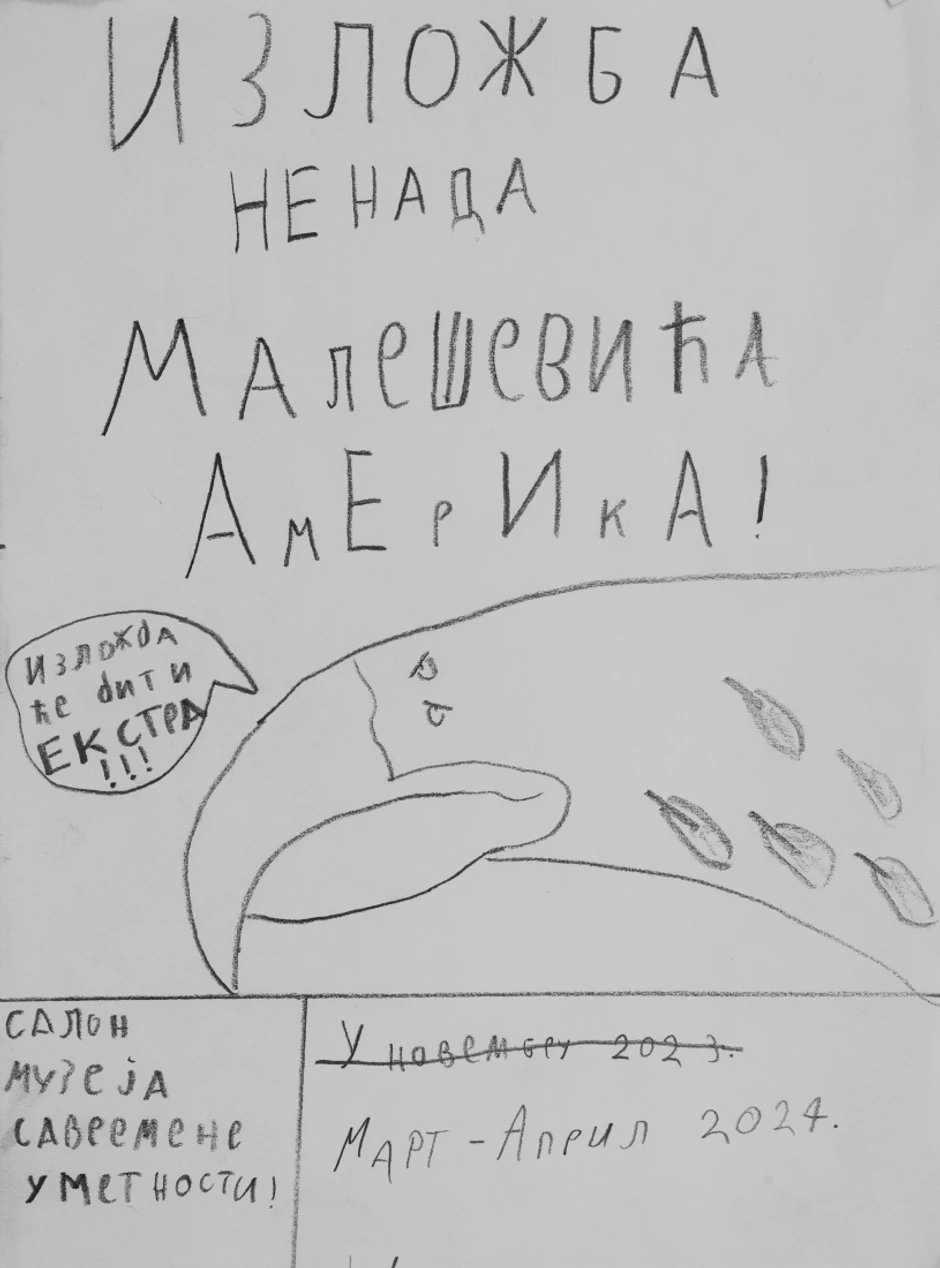 ИЗЛОЖБА
НЕНАДА
МАЛЕШЕВИЋА
АМЕРИКА!
ИЗЛОЖБА
ЋЕ БИТИ
ЕКСТРА
!!!
САЛОН
МУЗЕЈА
САВРЕМЕНЕ
УМЕТНОСТИ!
У НОВЕМБРУ 2023.
МАРТ-АПРИЛ 2024.